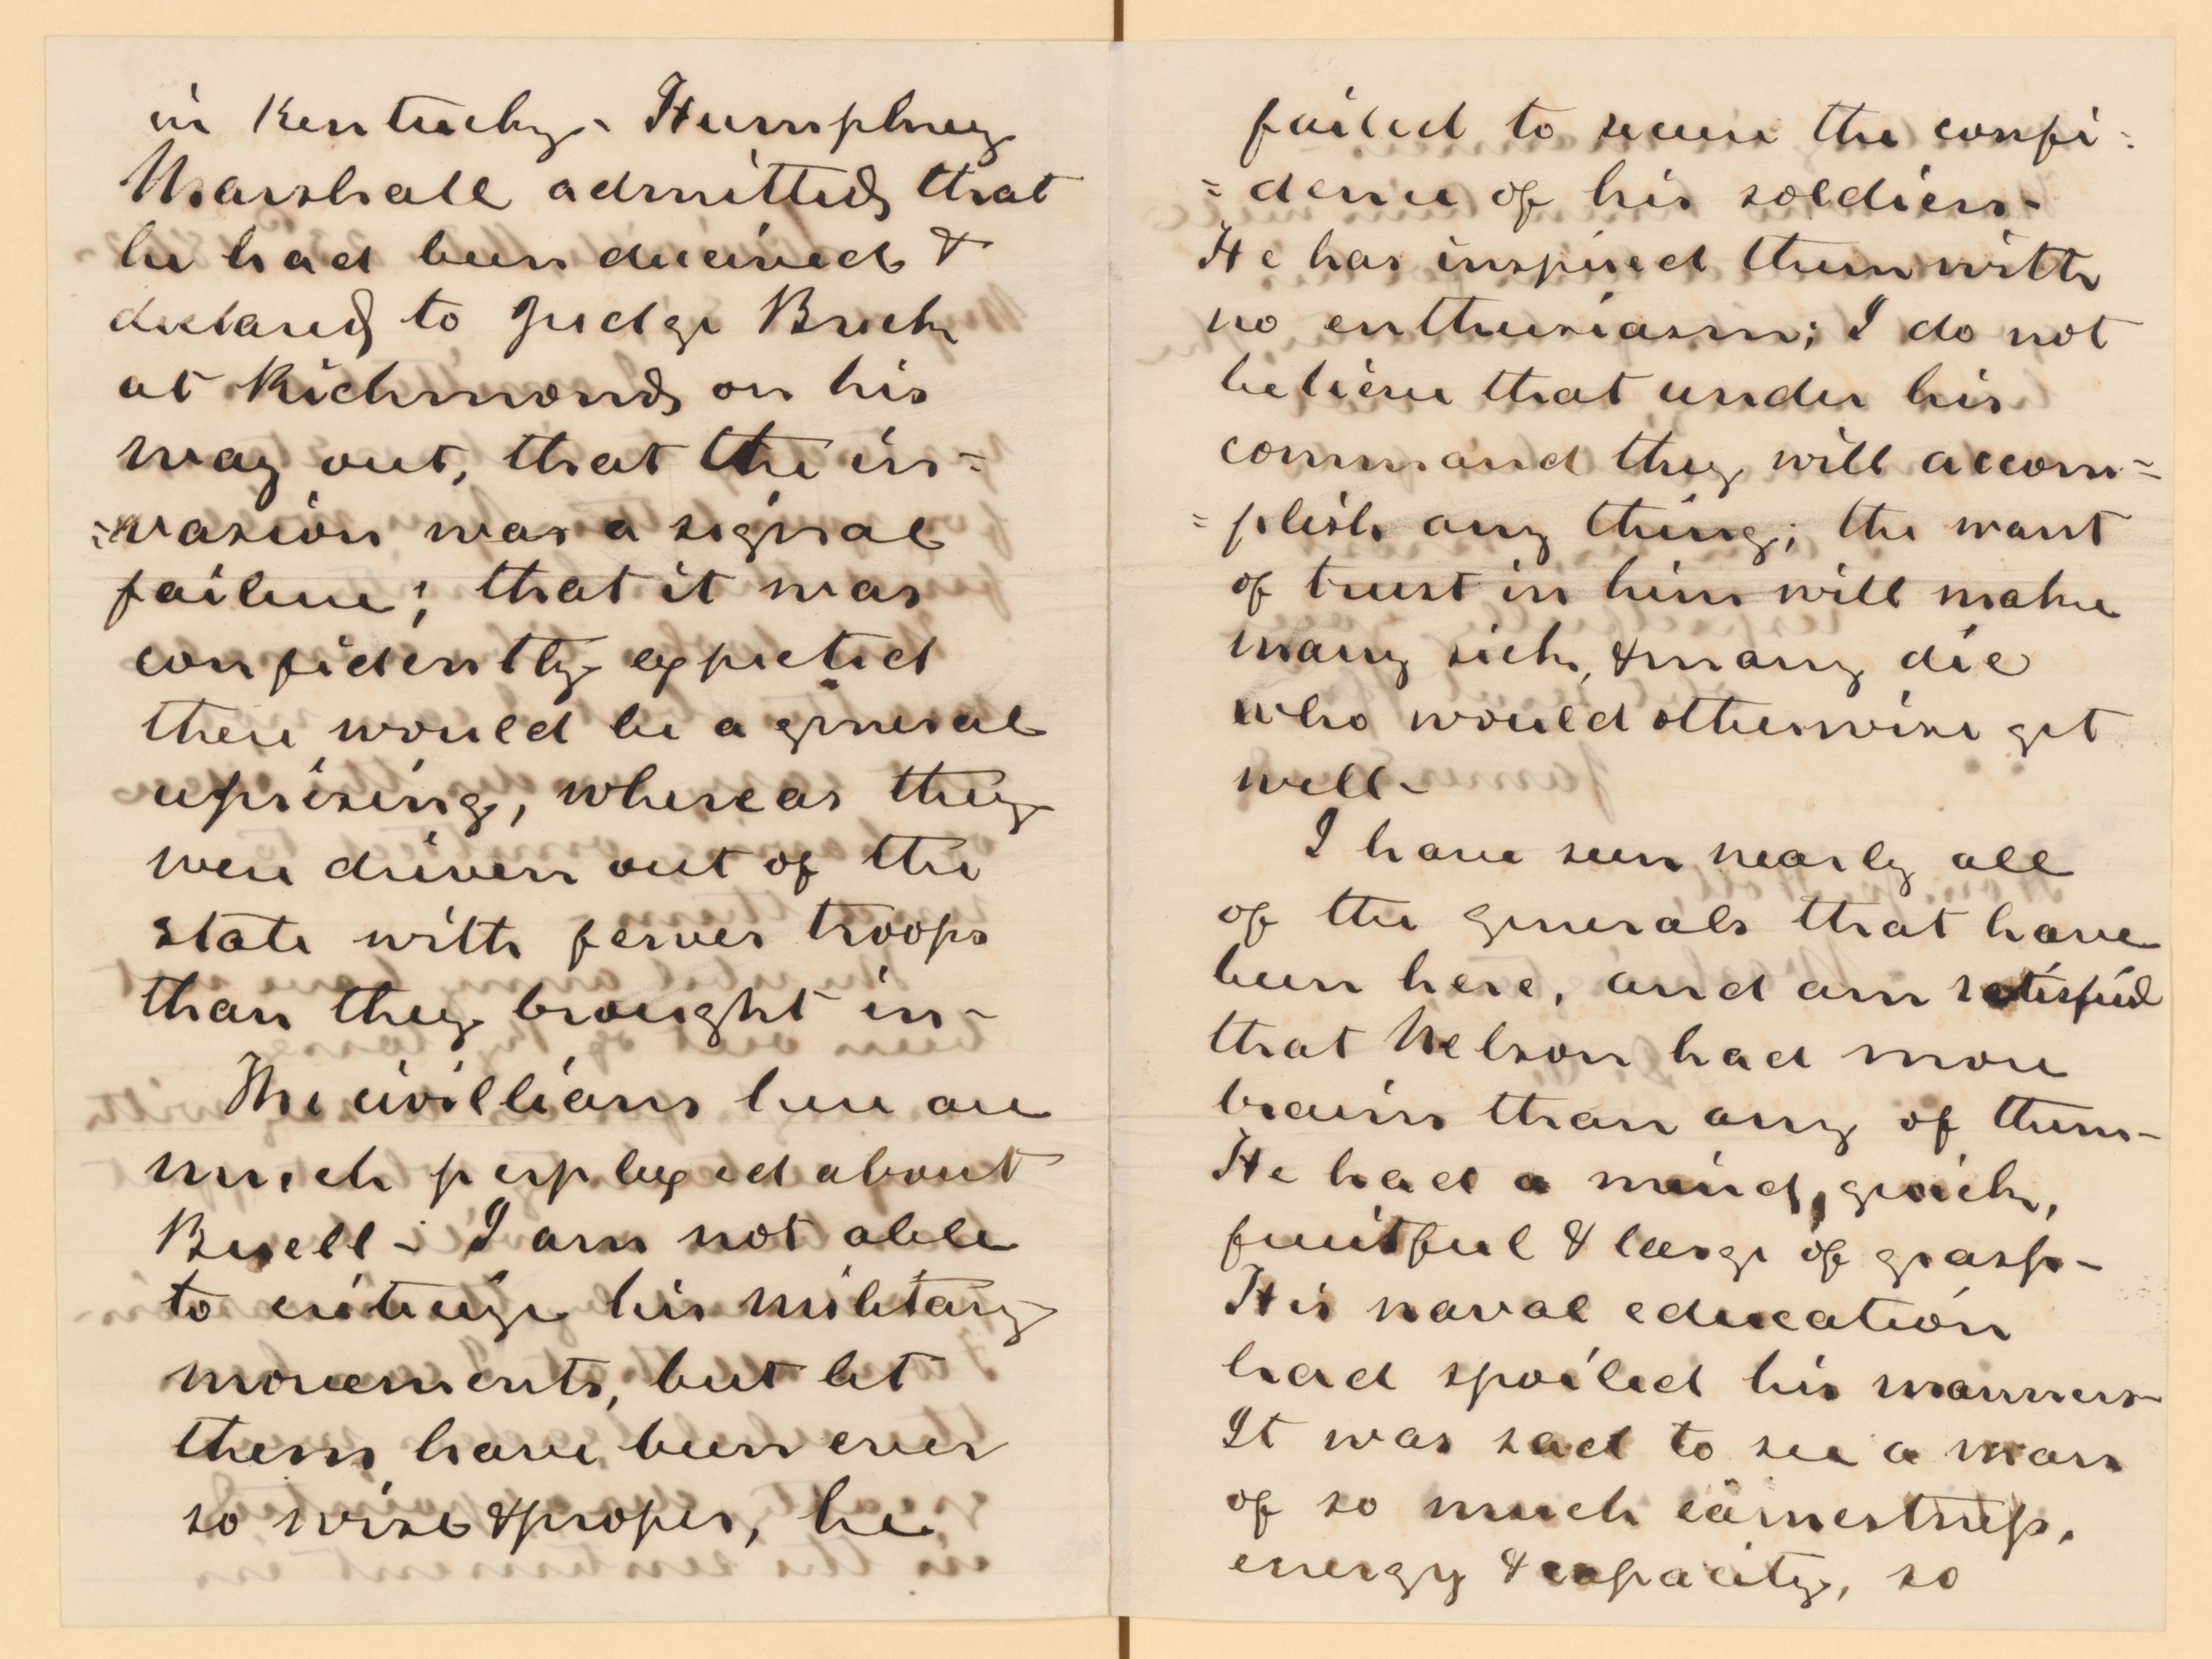 in Kentucky - Humphrey
Marshall admitted that
he had been deceived &
declared to Judge Breck
at Richmond on his
way out, that the in-
=vasion was a signal
failure; that it was
confidently expected
there would be a general
uprising, whereas they
were driven out of the
state with fewer troops
than they brought in -
The civillians here are
much perplexed about
Buell - I am not able
to criticize his military
movements, but let
them have been ever
so wise & proper, he
failed to secure the confi-
=dence of his soldiers -
He has inspired them with
no enthusiasm; I do not
believe that under his
command they will accom=
=plish any thing; the want
of trust in him will make
many sick, & many die
who would otherwise get
well -
I have seen nearly all
of the generals that have
been here, and am satisfied
that Nelson had more
brain than any of them -
He had a mind, quick,
fruitful & large of grasp -
His naval education
had spoiled his manners -
It was sad to see a man
of so much earnestness,
energy & capacity, so